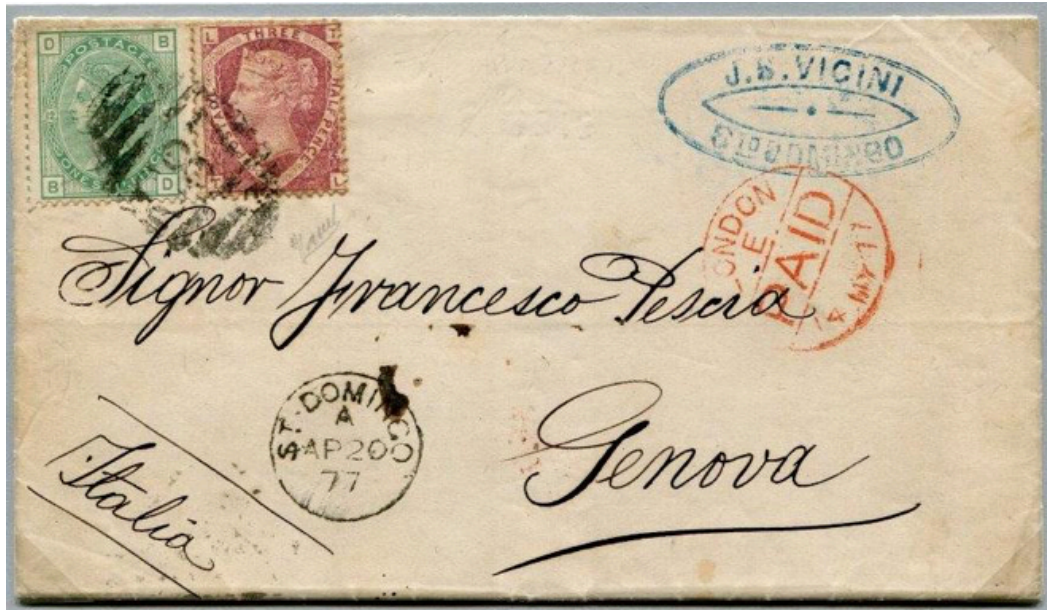 D B
POSTAGE
ONE SHILLING
B D
L T
THREE
HALF PENCE
L
J.B. VICINI
Sto DOMINGO
LONDON
E
PAID
14 MY 77
Signor Francesco Pescia
ST. DOMINGO
A
AP 20
77
Genova
Italia